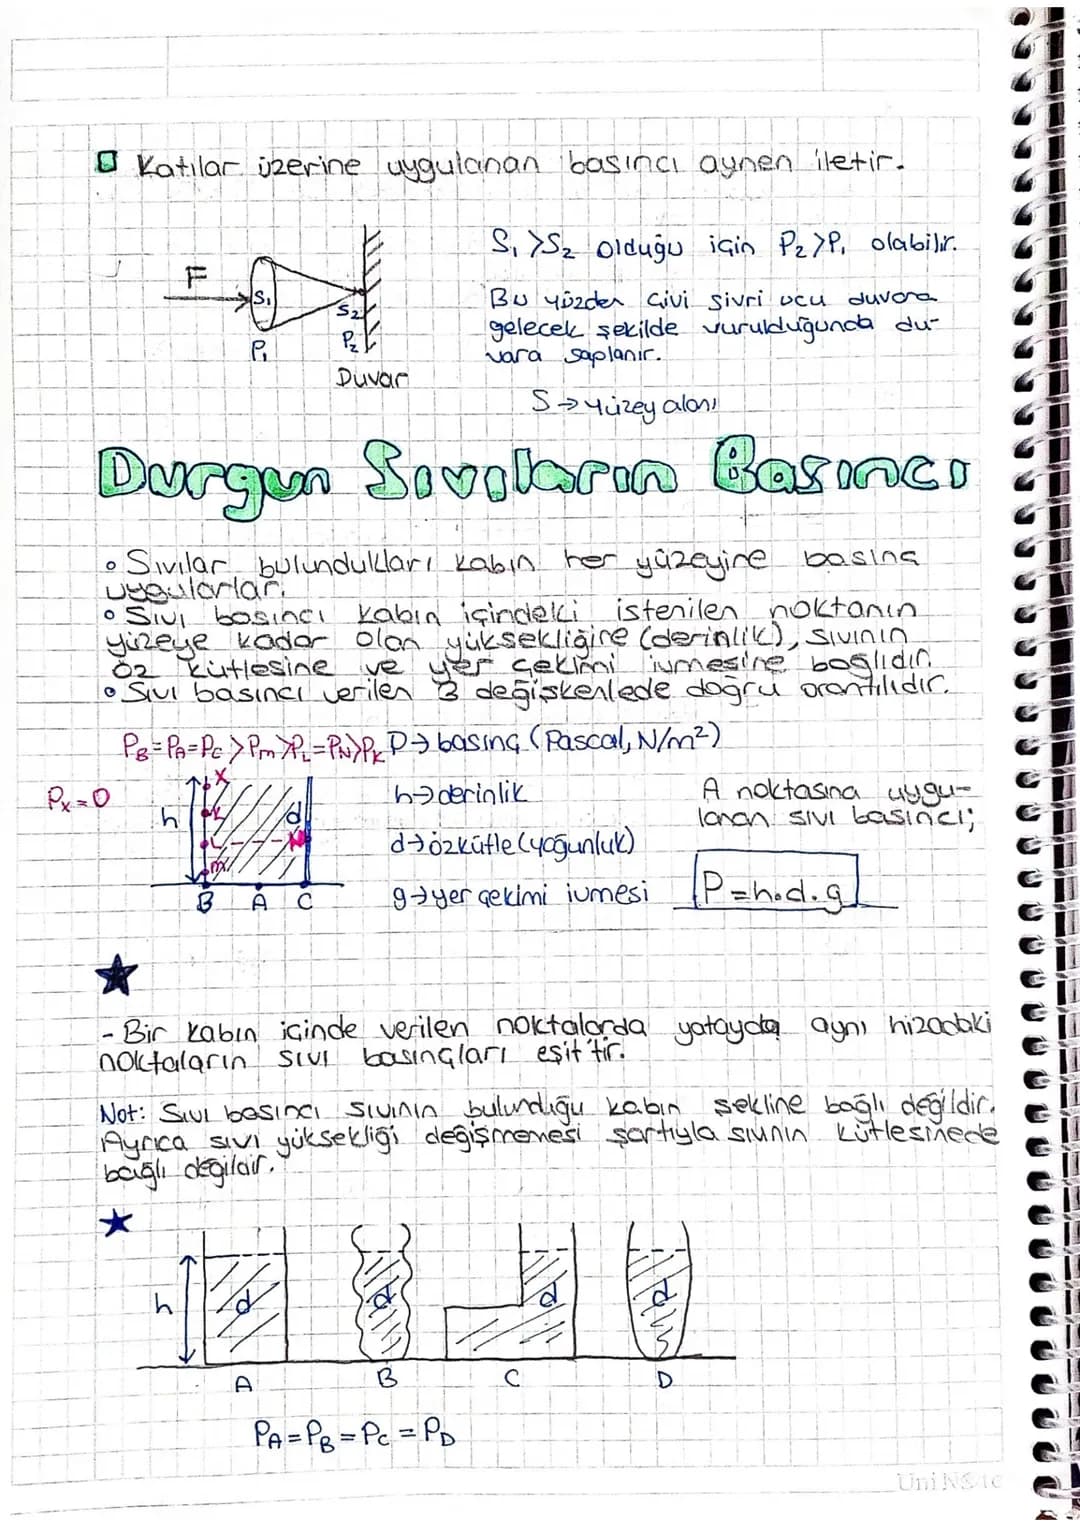 Katılar üzerine uygulanan basıncı aynen iletir.
F
S₁
S₂
P₁
P₂
Duvar
S₁ >S₂ olduğu için P₂>P₁ olabilir.
Bu yüzden çivi sivri ucu duvara
gelecek şekilde vurulduğunda du-
vara saplanır.
S→yüzey alanı
Durgun Sıvıların Basıncı
• Sıvılar bulundukları kabın her yüzeyine basınç
uygularlar.
• Sıvı basıncı kabın içindeki istenilen noktanın
yüzeye kadar olan yüksekliğine (derinlik), sıvının
öz kütlesine ve yer çekimi ivmesine bağlıdır.
• Sıvı basıncı verilen 3 değişkenlede doğru orantılıdır.
P_B=P_A=P_C>P_m>P_L=P_N>P_K
P→basınç (Pascal, N/m²)
Pₓ=0
h
X
K
L
N
m
d
B A C
h→derinlik
d→özkütle(yoğunluk)
g→yer çekimi ivmesi
A noktasına uygu-
lanan sıvı basıncı;
P=h.d.g
- Bir kabın içinde verilen noktalarda yatayda aynı hizadaki
noktaların sıvı basınçları eşit'tir.
Not: Sıvı basıncı sıvının bulunduğu kabın şekline bağlı değildir.
Ayrıca sıvı yüksekliği değişmemesi şartıyla sıvının kütlesinede
bağlı değildir.
h
d d d d
A B C D
P_A=P_B=P_C=P_D
UniNote